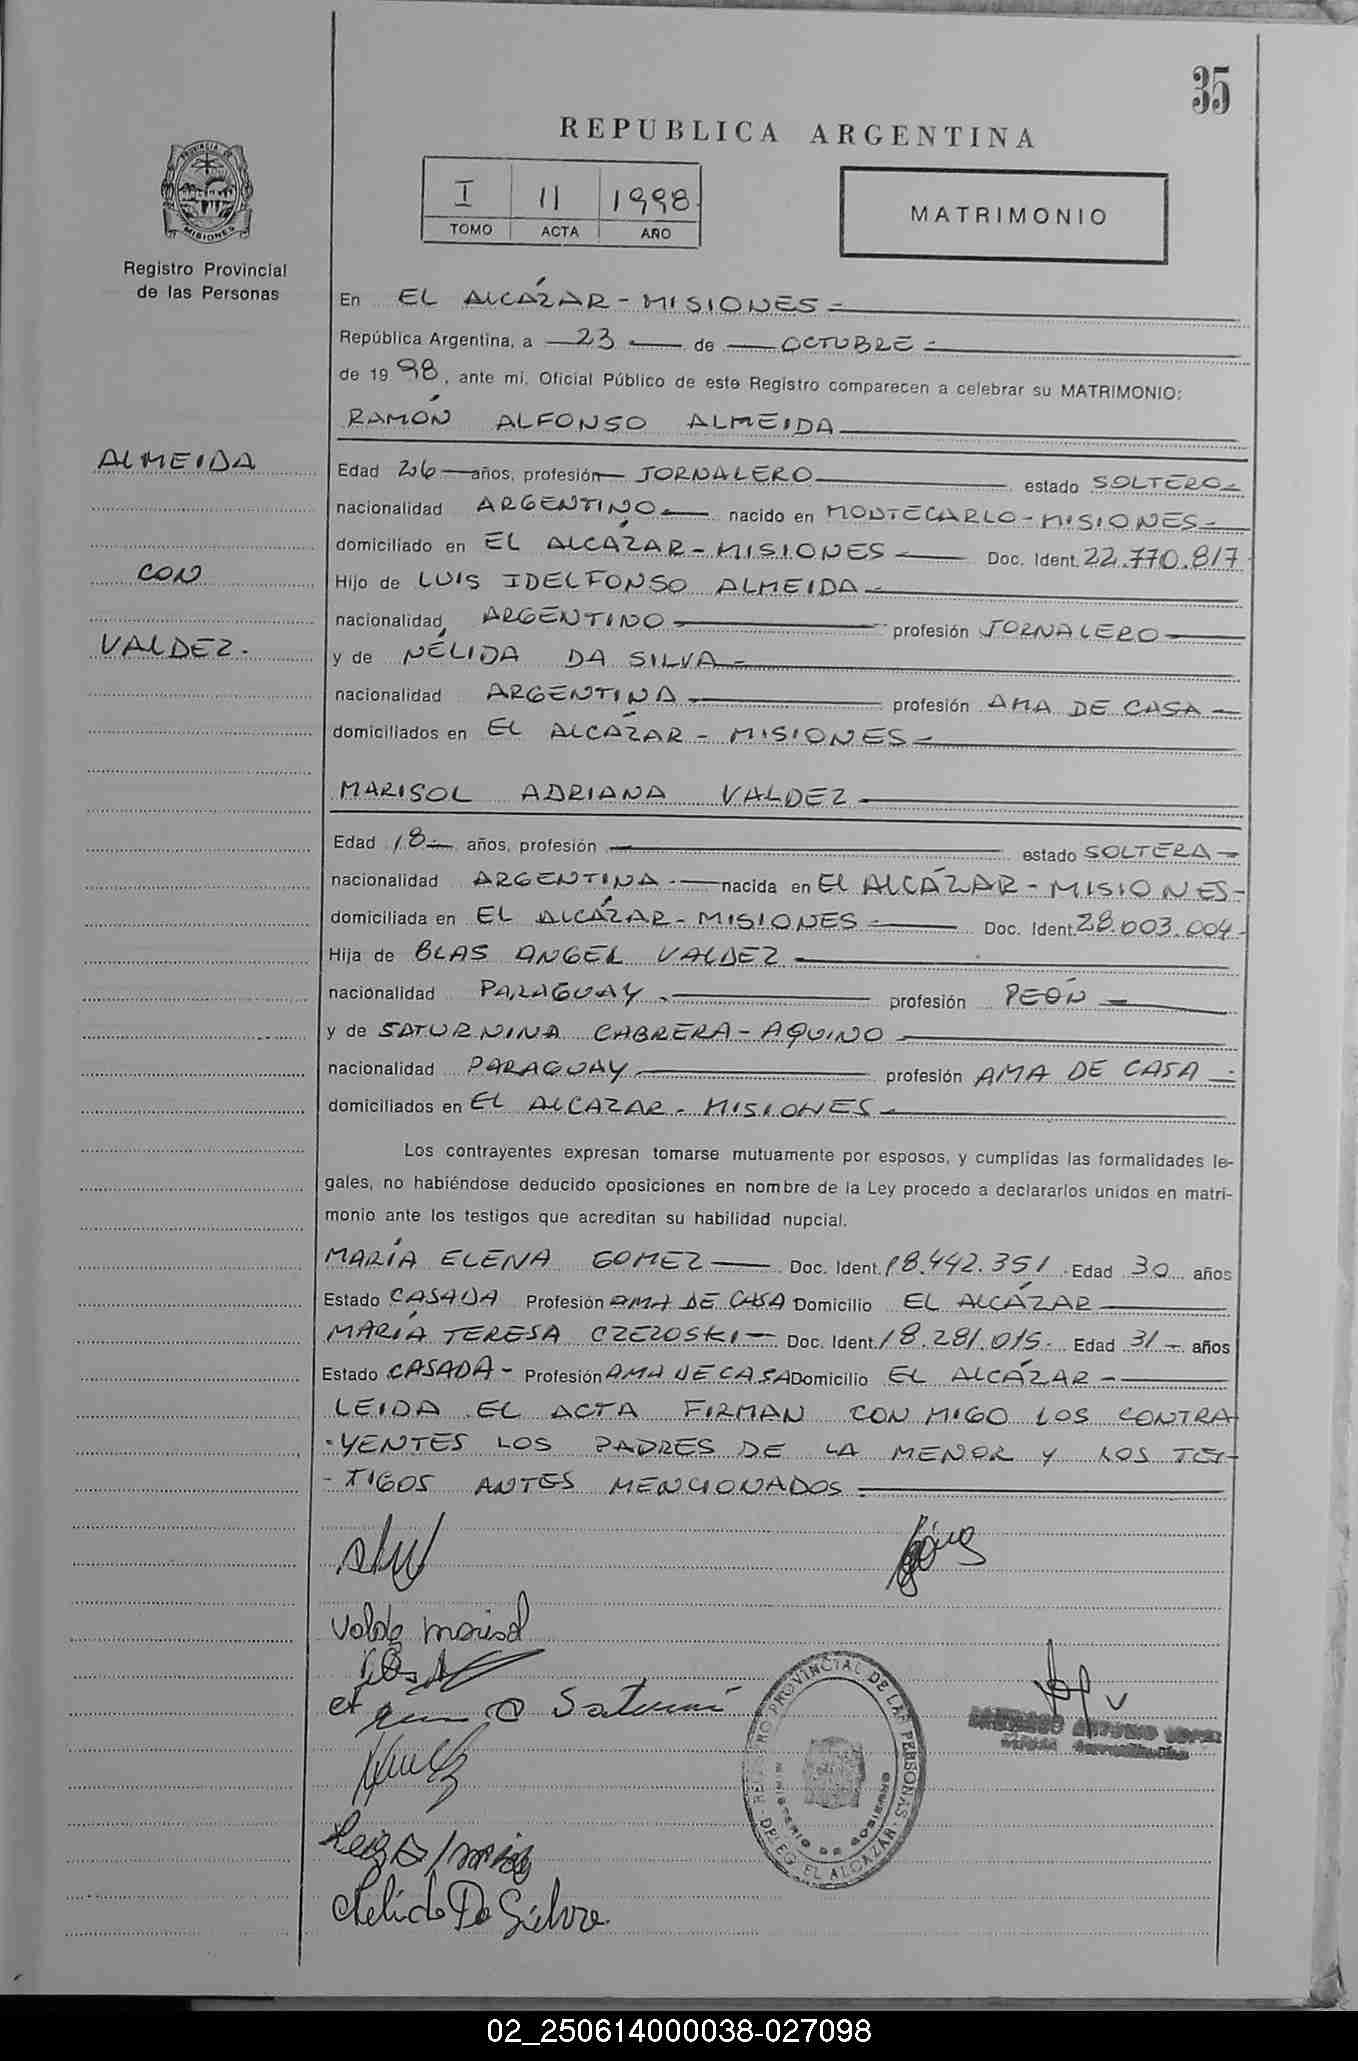 35
REPUBLICA ARGENTINA
I 11 1998
TOMO ACTA AÑO
MATRIMONIO
PROVINCIA DE MISIONES
Registro Provincial
de las Personas
En EL ALCÁZAR - MISIONES -
República Argentina, a 23 de OCTUBRE -
de 1998, ante mi, Oficial Público de este Registro comparecen a celebrar su MATRIMONIO:
RAMÓN ALFONSO ALMEIDA
ALMEIDA
CON
VALDEZ.
Edad 26 años, profesión JORNALERO estado SOLTERO
nacionalidad ARGENTINO nacido en MONTECARLO - MISIONES -
domiciliado en EL ALCÁZAR - MISIONES Doc. Ident. 22.770.817
Hijo de LUIS IDELFONSO ALMEIDA
nacionalidad ARGENTINO profesión JORNALERO
y de NÉLIDA DA SILVA -
nacionalidad ARGENTINA profesión AMA DE CASA -
domiciliados en EL ALCÁZAR - MISIONES -
MARISOL ADRIANA VALDEZ
Edad 18 años, profesión estado SOLTERA -
nacionalidad ARGENTINA nacida en EL ALCÁZAR - MISIONES -
domiciliada en EL ALCÁZAR - MISIONES Doc. Ident. 28.003.004
Hija de BLAS ANGEL VALDEZ
nacionalidad PARAGUAY profesión PEÓN
y de SATURNINA CABRERA - AQUINO
nacionalidad PARAGUAY profesión AMA DE CASA
domiciliados en EL ALCAZAR - MISIONES -
Los contrayentes expresan tomarse mutuamente por esposos, y cumplidas las formalidades le-
gales, no habiéndose deducido oposiciones en nombre de la Ley procedo a declararlos unidos en matri-
monio ante los testigos que acreditan su habilidad nupcial.
MARÍA ELENA GOMEZ Doc. Ident. 18.442.351 Edad 30 años
Estado CASADA Profesión AMA DE CASA Domicilio EL ALCÁZAR
MARÍA TERESA CZEZOSKI - Doc. Ident. 18.281.015 Edad 31 años
Estado CASADA - Profesión AMA DE CASA Domicilio EL ALCÁZAR -
LEIDA EL ACTA FIRMAN CON MIGO LOS CONTRA
-YENTES LOS PADRES DE LA MENOR Y LOS TES-
-TIGOS ANTES MENCIONADOS
Valdez Marisol
Saturni
REGISTRO PROVINCIAL DE LAS PERSONAS
MINISTERIO DE GOBIERNO
DELEG. EL ALCAZAR
Nelida Da Silva
02_250614000038-027098